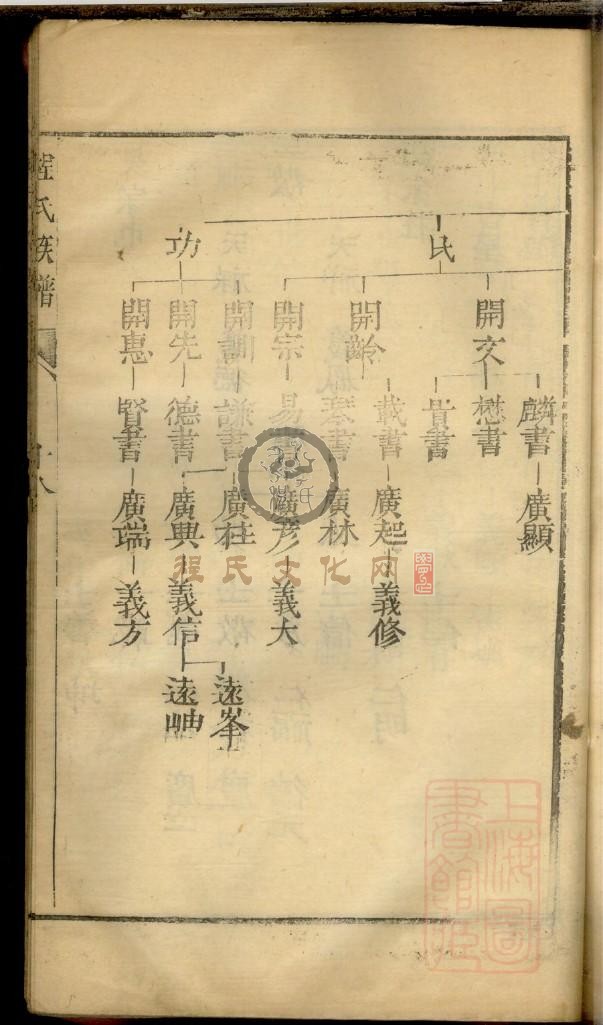 民
開文
麟書
廣顯
懋書
貴書
開齡
載書
廣起
義修
琴書
廣林
開宗
易書
廣彦
義大
功
開疇
德謙書
廣在
開先
德書
廣興
義信
遠峯
遠岫
開惠
賢書
廣端
義方
程氏族譜
十八
程氏文化网
上海圖書館藏